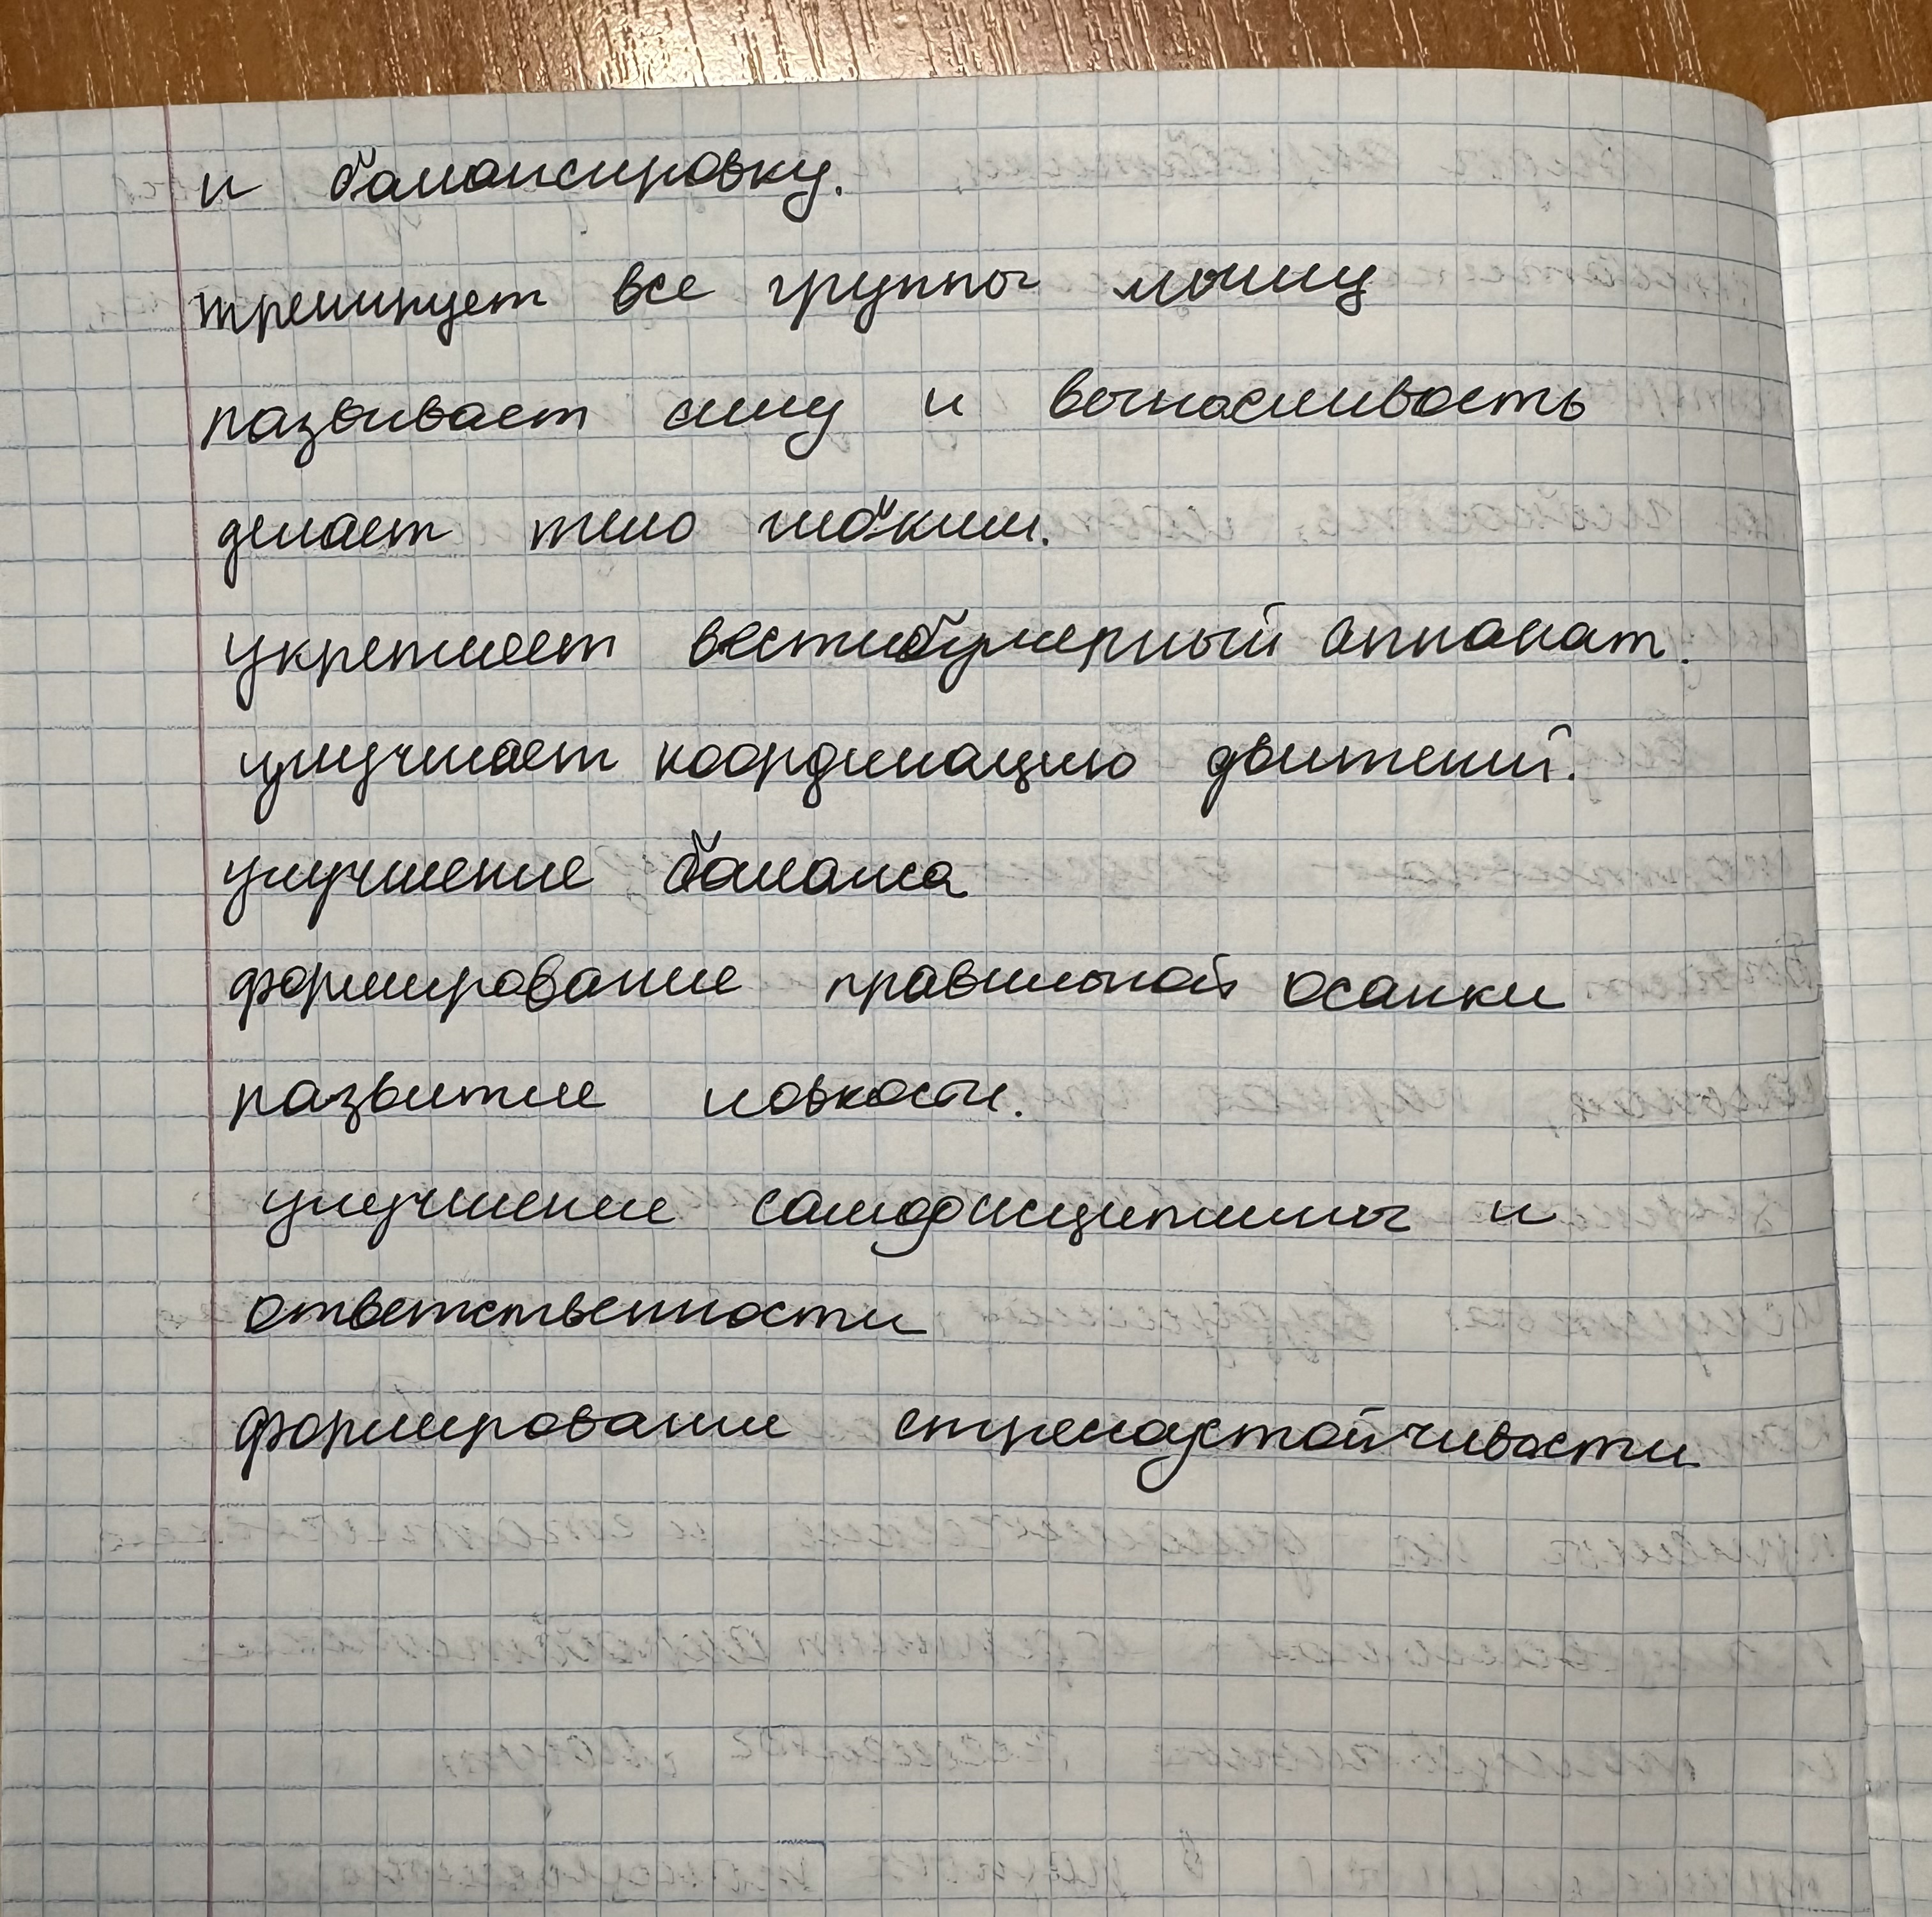 и балансировку.
тренирует все группы мышц
развивает силу и выносливость
делает тело гибким.
укрепляет вестибулярный аппарат.
улучшает координацию движений.
улучшение баланса
формирование правильной осанки
развитие ловкости.
улучшение самодисциплины и
ответственности
формирование стрессоустойчивости